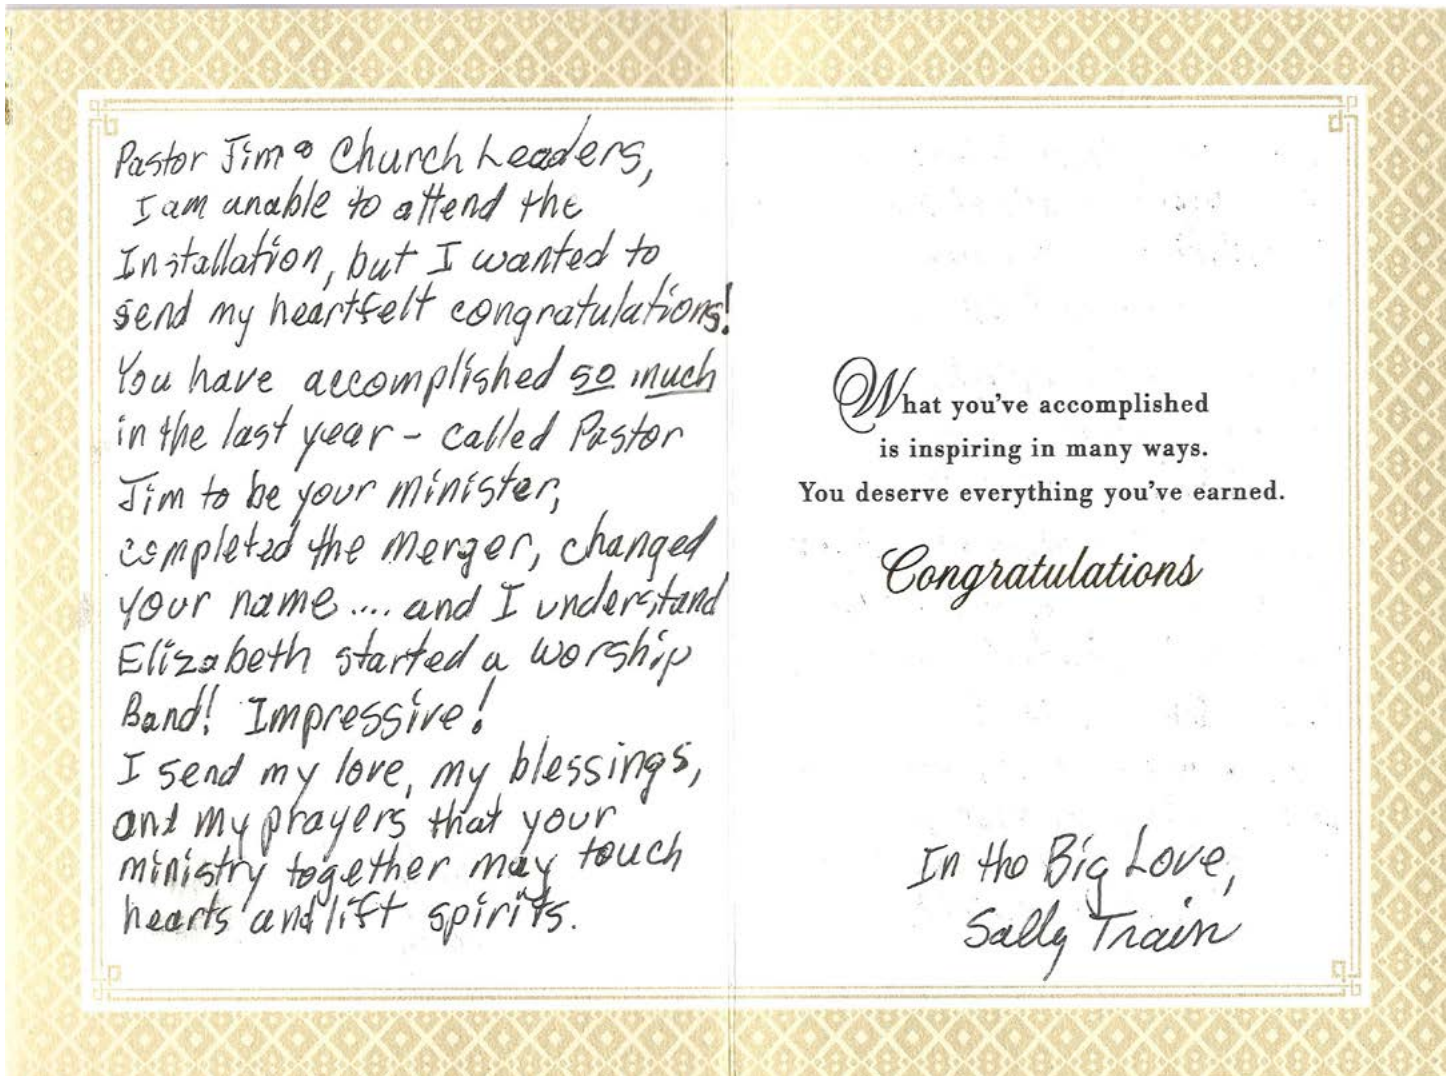 Pastor Jim & Church Leaders,
I am unable to attend the
Installation, but I wanted to
send my heartfelt congratulations!
You have accomplished so much
in the last year - called Pastor
Jim to be your minister,
completed the merger, changed
your name.... and I understand
Elizabeth started a worship
Band! Impressive!
I send my love, my blessings,
and my prayers that your
ministry together may touch
hearts and lift spirits.
What you've accomplished
is inspiring in many ways.
You deserve everything you've earned.
Congratulations
In the Big Love,
Sally Train